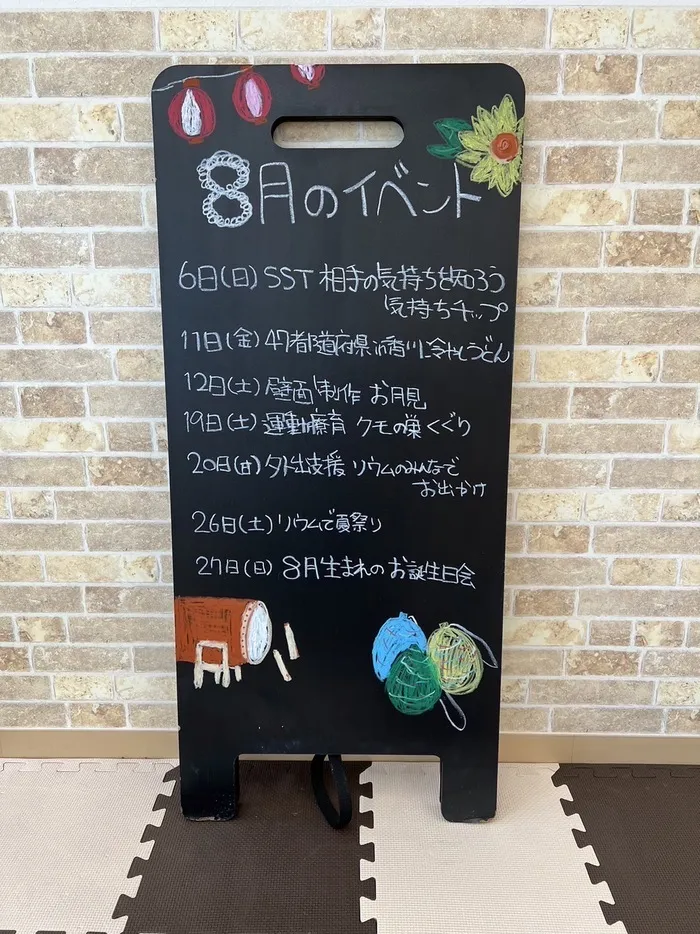 8月のイベント
6日(日) SST 相手の気持ちを知ろう
気持ちチップ
11日(金) 47都道府県in香川 冷やしうどん
12日(土) 壁画制作 お月見
19日(土) 運動療育 クモの巣くぐり
20日(日) 外出支援 リウムのみんなで
お出かけ
26日(土) リウムで夏祭り
27日(日) 8月生まれのお誕生日会